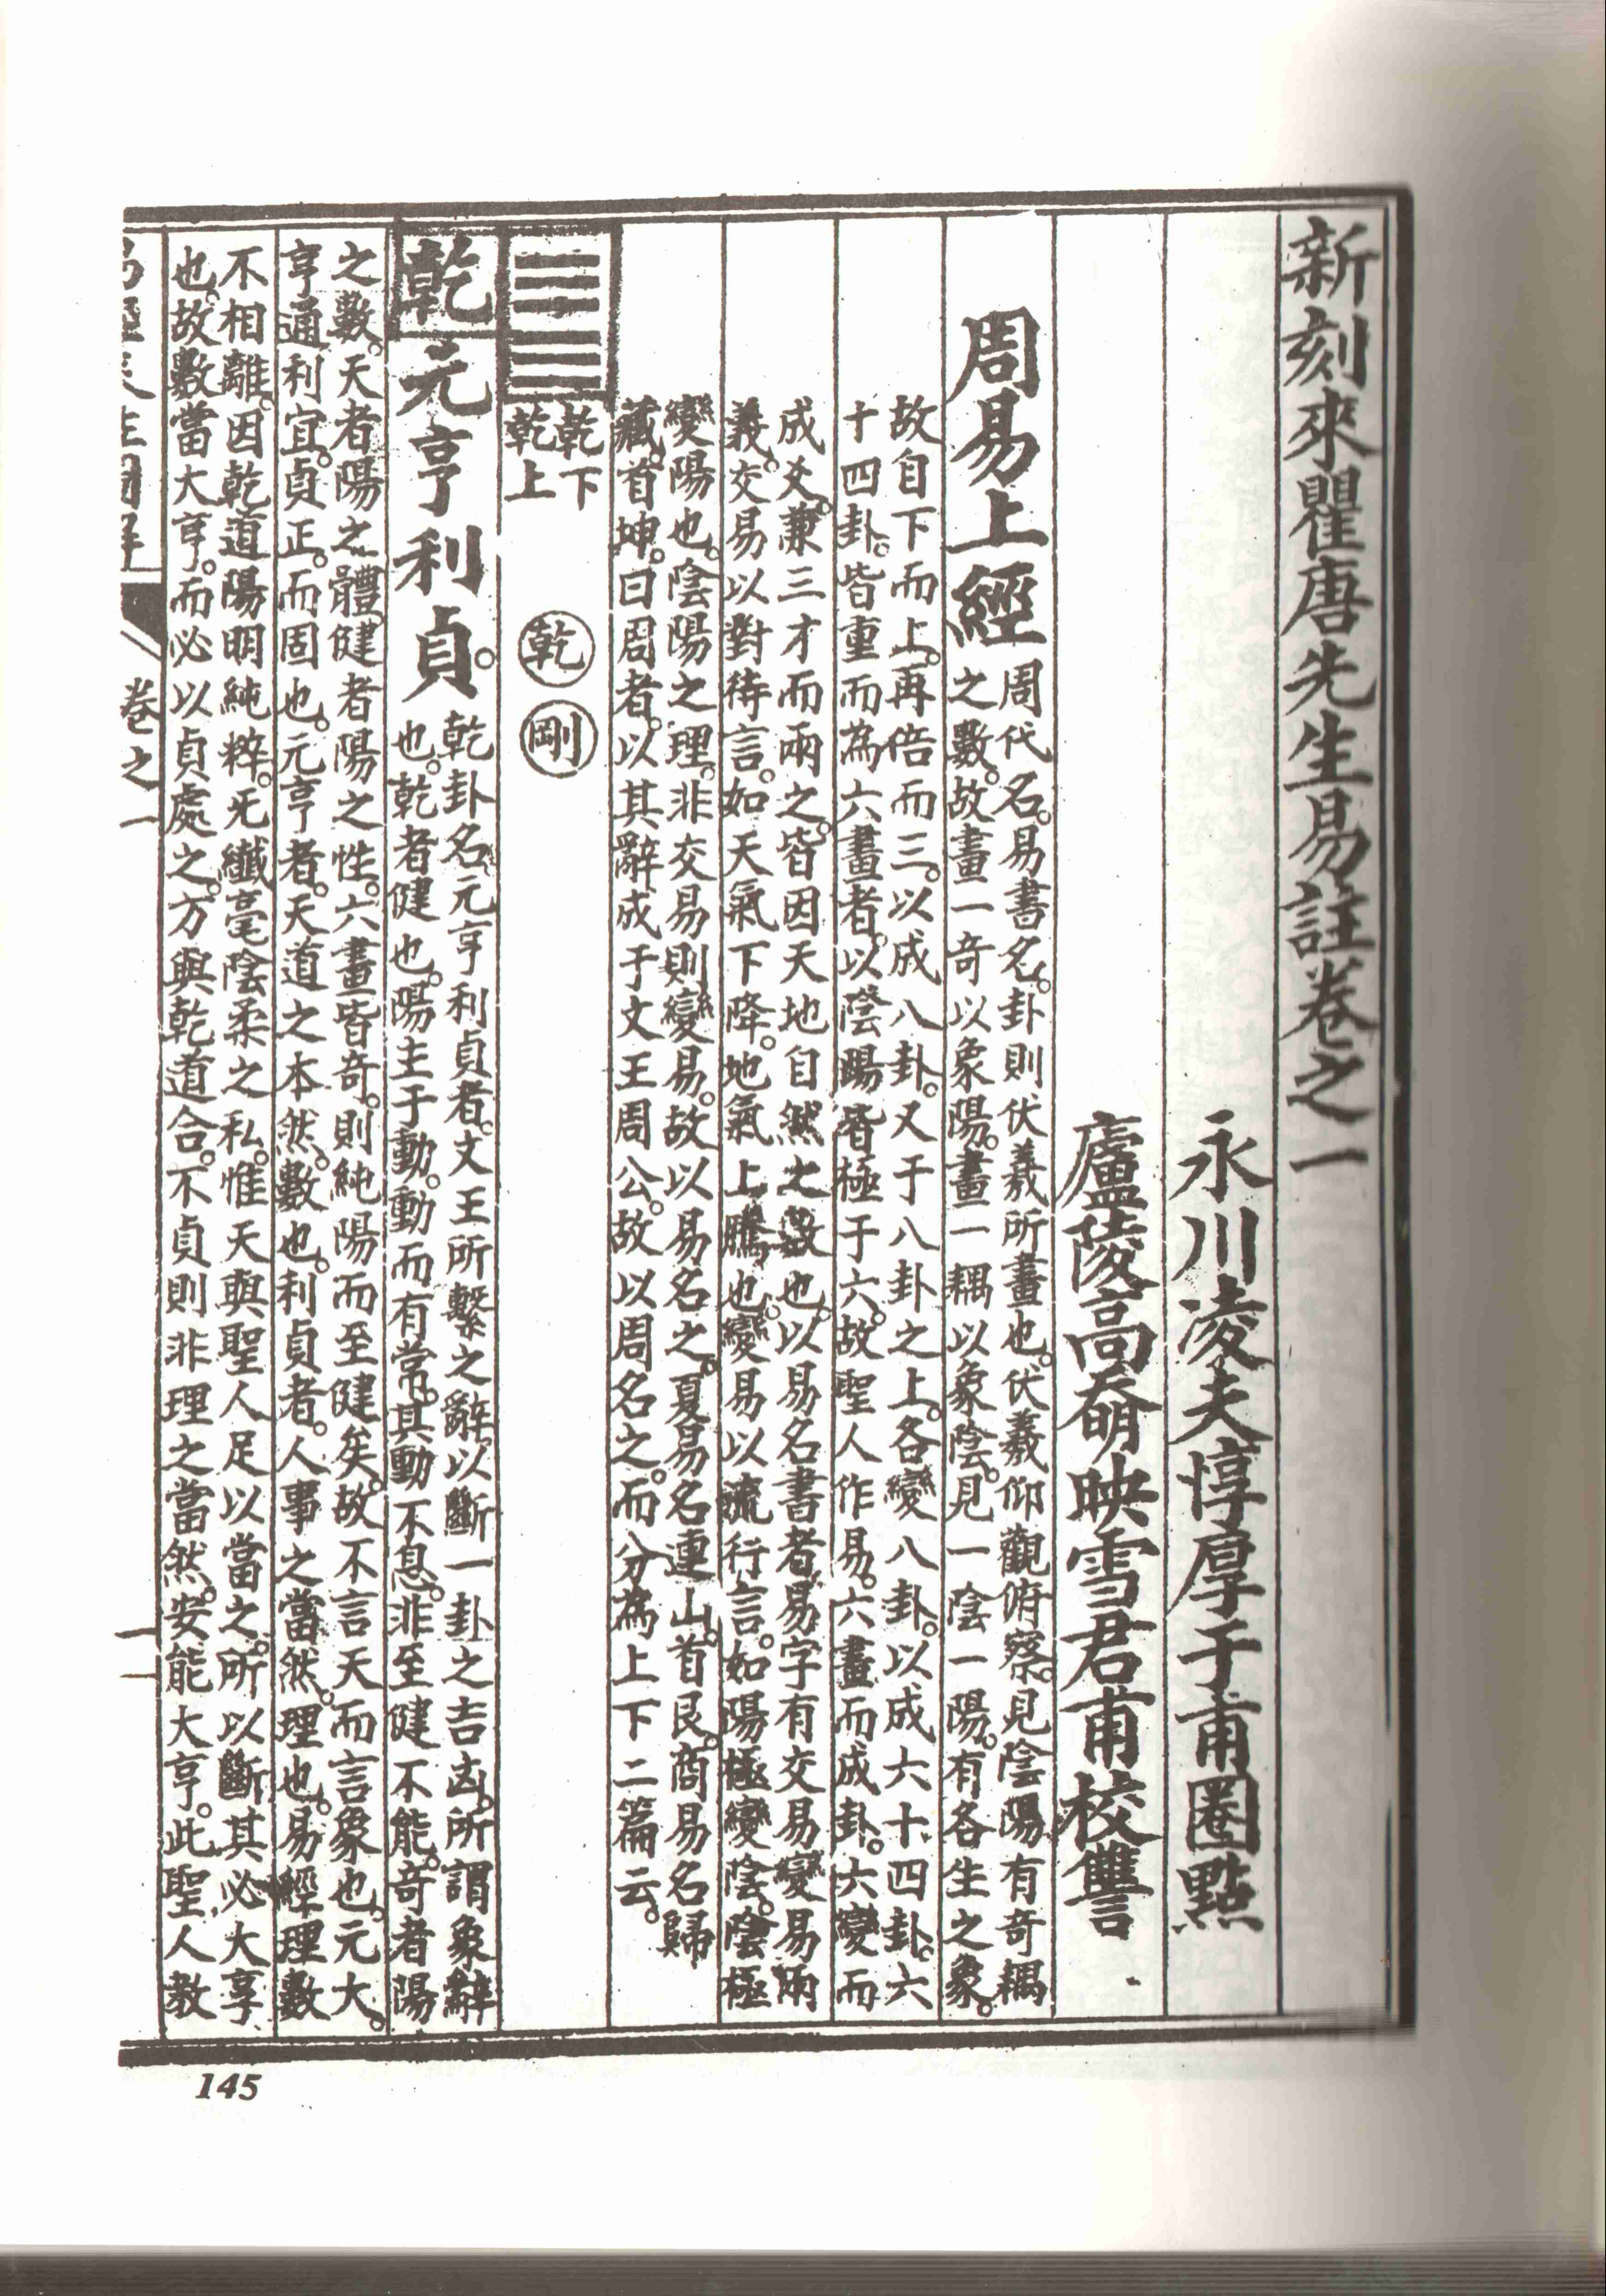 新刻來瞿唐先生易註卷之一
永川凌夫惇厚子甫圈點
廬陵高奣映雪君甫校讐
周易上經
周代名。易書名。卦則伏羲所畫也。伏羲仰觀俯察。見陰陽有奇耦
之數。故畫一奇以象陽。畫一耦以象陰。見一陰一陽。有各生之象。
故自下而上。再倍而三。以成八卦。又于八卦之上。各變八卦。以成六十四卦。六
十四卦。皆重而為六畫者。以陰陽皆極于六。故聖人作易。六畫而成卦。六變而
成爻。兼三才而兩之。皆因天地自然之數也。以易名書者。易字有交易變易兩
義。交易以對待言。如天氣下降。地氣上騰也。變易以流行言。如陽極變陰。陰極
變陽也。陰陽之理。非交易則變易。故以易名之。夏易名連山。首艮。商易名歸
藏。首坤。曰周者。以其辭成于文王周公。故以周名之。而分為上下二篇云。
乾下
乾上
乾
剛
乾元亨利貞。
乾卦名。元亨利貞者。文王所繫之辭。以斷一卦之吉凶。所謂彖辭
也。乾者健也。陽主于動。動而有常。其動不息。非至健不能。奇者陽
之數。天者陽之體。健者陽之性。六畫皆奇。則純陽而至健矣。故不言天。而言象也。元大。
亨通利宜。貞正。而固也。元亨者。天道之本然。數也。利貞者。人事之當然。理也。易經理數
不相離。因乾道陽明純粹。旡纖毫陰柔之私。惟天與聖人足以當之。所以斷其必大亨
也。故數當大亨。而必以貞處之。方與乾道合。不貞則非理之當然。安能大亨。此聖人教
卷之一
145